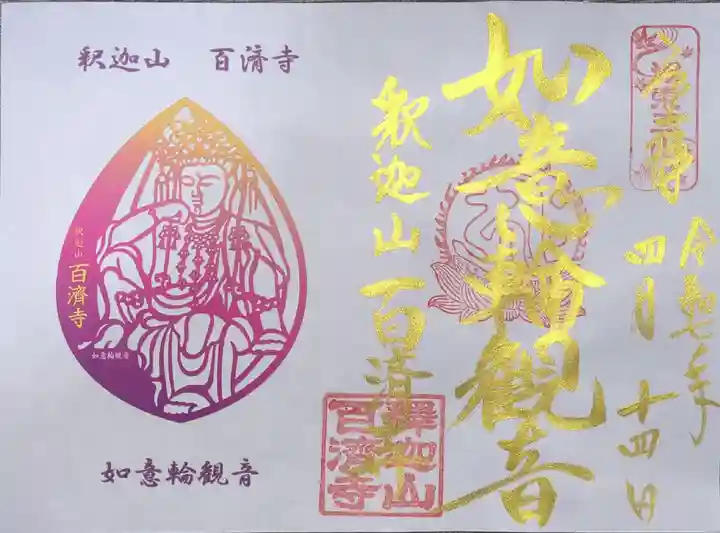 釈迦山 百済寺
釈迦山
百濟寺
如意輪観音
如意輪観音
令和七年
四月十四日
如意輪観音
釈迦山百済寺
釋迦山
百濟寺